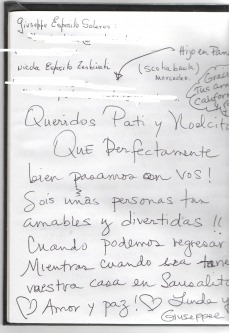 Giuseppe Esposito Solares
Hijo en Pana
Nicola Esposito
(scotiabank)
Graci
Tus am
Califor
Queridos Pati y Noelcita
QUE Perfectamente
bien pasamos con VOS!
Sois unas personas tan
amables y divertidas !!
Cuando podemos regresar
Mientras cuando sea tane
vuestra casa en Sausalito
♡ Amor y paz! ♡ Linda y
Giuseppe